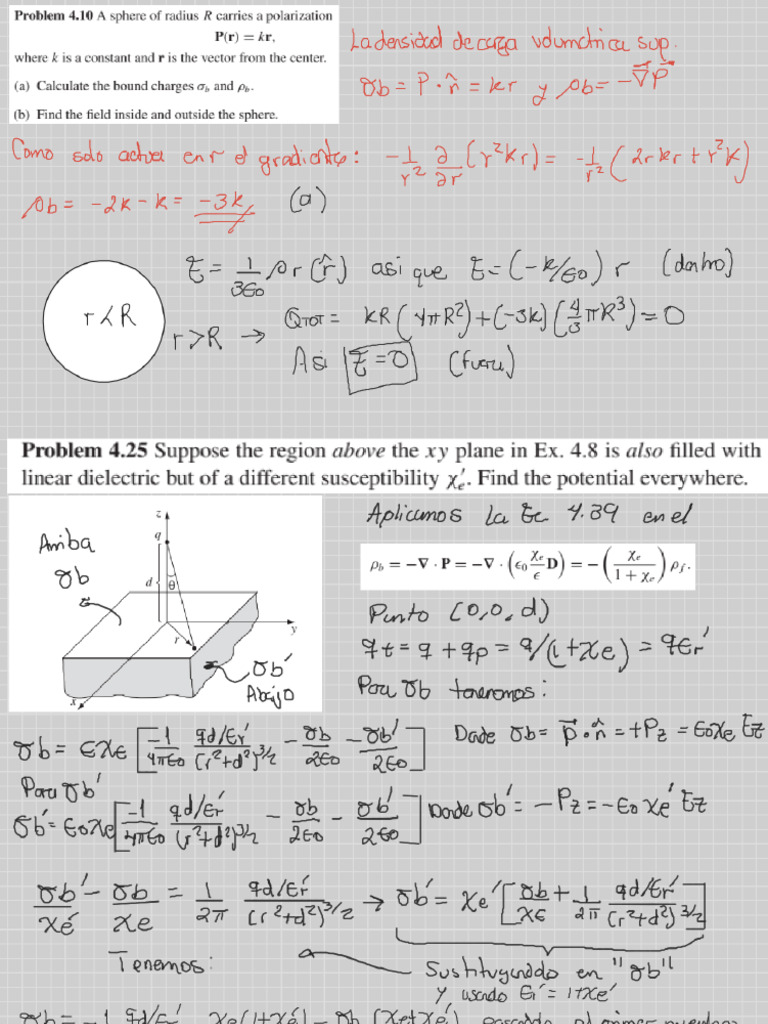 Problem 4.10 A sphere of radius R carries a polarization
P(r) = kr,
where k is a constant and r is the vector from the center.
(a) Calculate the bound charges σb and ρb.
(b) Find the field inside and outside the sphere.
La densidad de carga volumetrica sup.
σb = P · n̂ = kr y ρb = -∇P
Como solo actua en r el gradiente: -1/r² ∂/∂r (r²kr) = -1/r² (2rkr + r²k)
ρb = -2k - k = -3k, (a)
E = 1/3ε0 ρr (r̂) asi que E = (-k/ε0) r (dentro)
r < R
r > R → QTOT = kR(4πR²) + (-3k)(4/3 πR³) = 0
Asi E = 0 (fuera)
Problem 4.25 Suppose the region above the xy plane in Ex. 4.8 is also filled with
linear dielectric but of a different susceptibility χ′e. Find the potential everywhere.
Arriba
σb
z
q
d
θ
r
y
x
σb'
Abajo
Aplicamos la Ec 4.39 en el
ρb = -∇ · P = -∇ · (ε0 χe/ε D) = -(χe/1 + χe) ρf.
Punto (0,0,d)
qt = q + qp = q/(1+χe) = qεr'
Para σb tenemos:
σb = εχe [-1/4πε0 qd/εr'/(r²+d²)^3/2 - σb/2ε0 - σb'/2ε0] Donde σb = P · n̂ = +Pz = ε0χe Ez
Para σb'
σb' = ε0χe [-1/4πε0 qd/εr'/(r²+d²)^3/2 - σb/2ε0 - σb'/2ε0] Donde σb' = -Pz = -ε0 χe' Ez
σb'/χe' - σb/χe = 1/2π qd/εr'/(r²+d²)^3/2 → σb' = χe' [σb/χε + 1/2π qd/εr'/(r²+d²)^3/2]
Tenemos:
Sustituyendo en "σb"
y usando εr' = 1+χe'